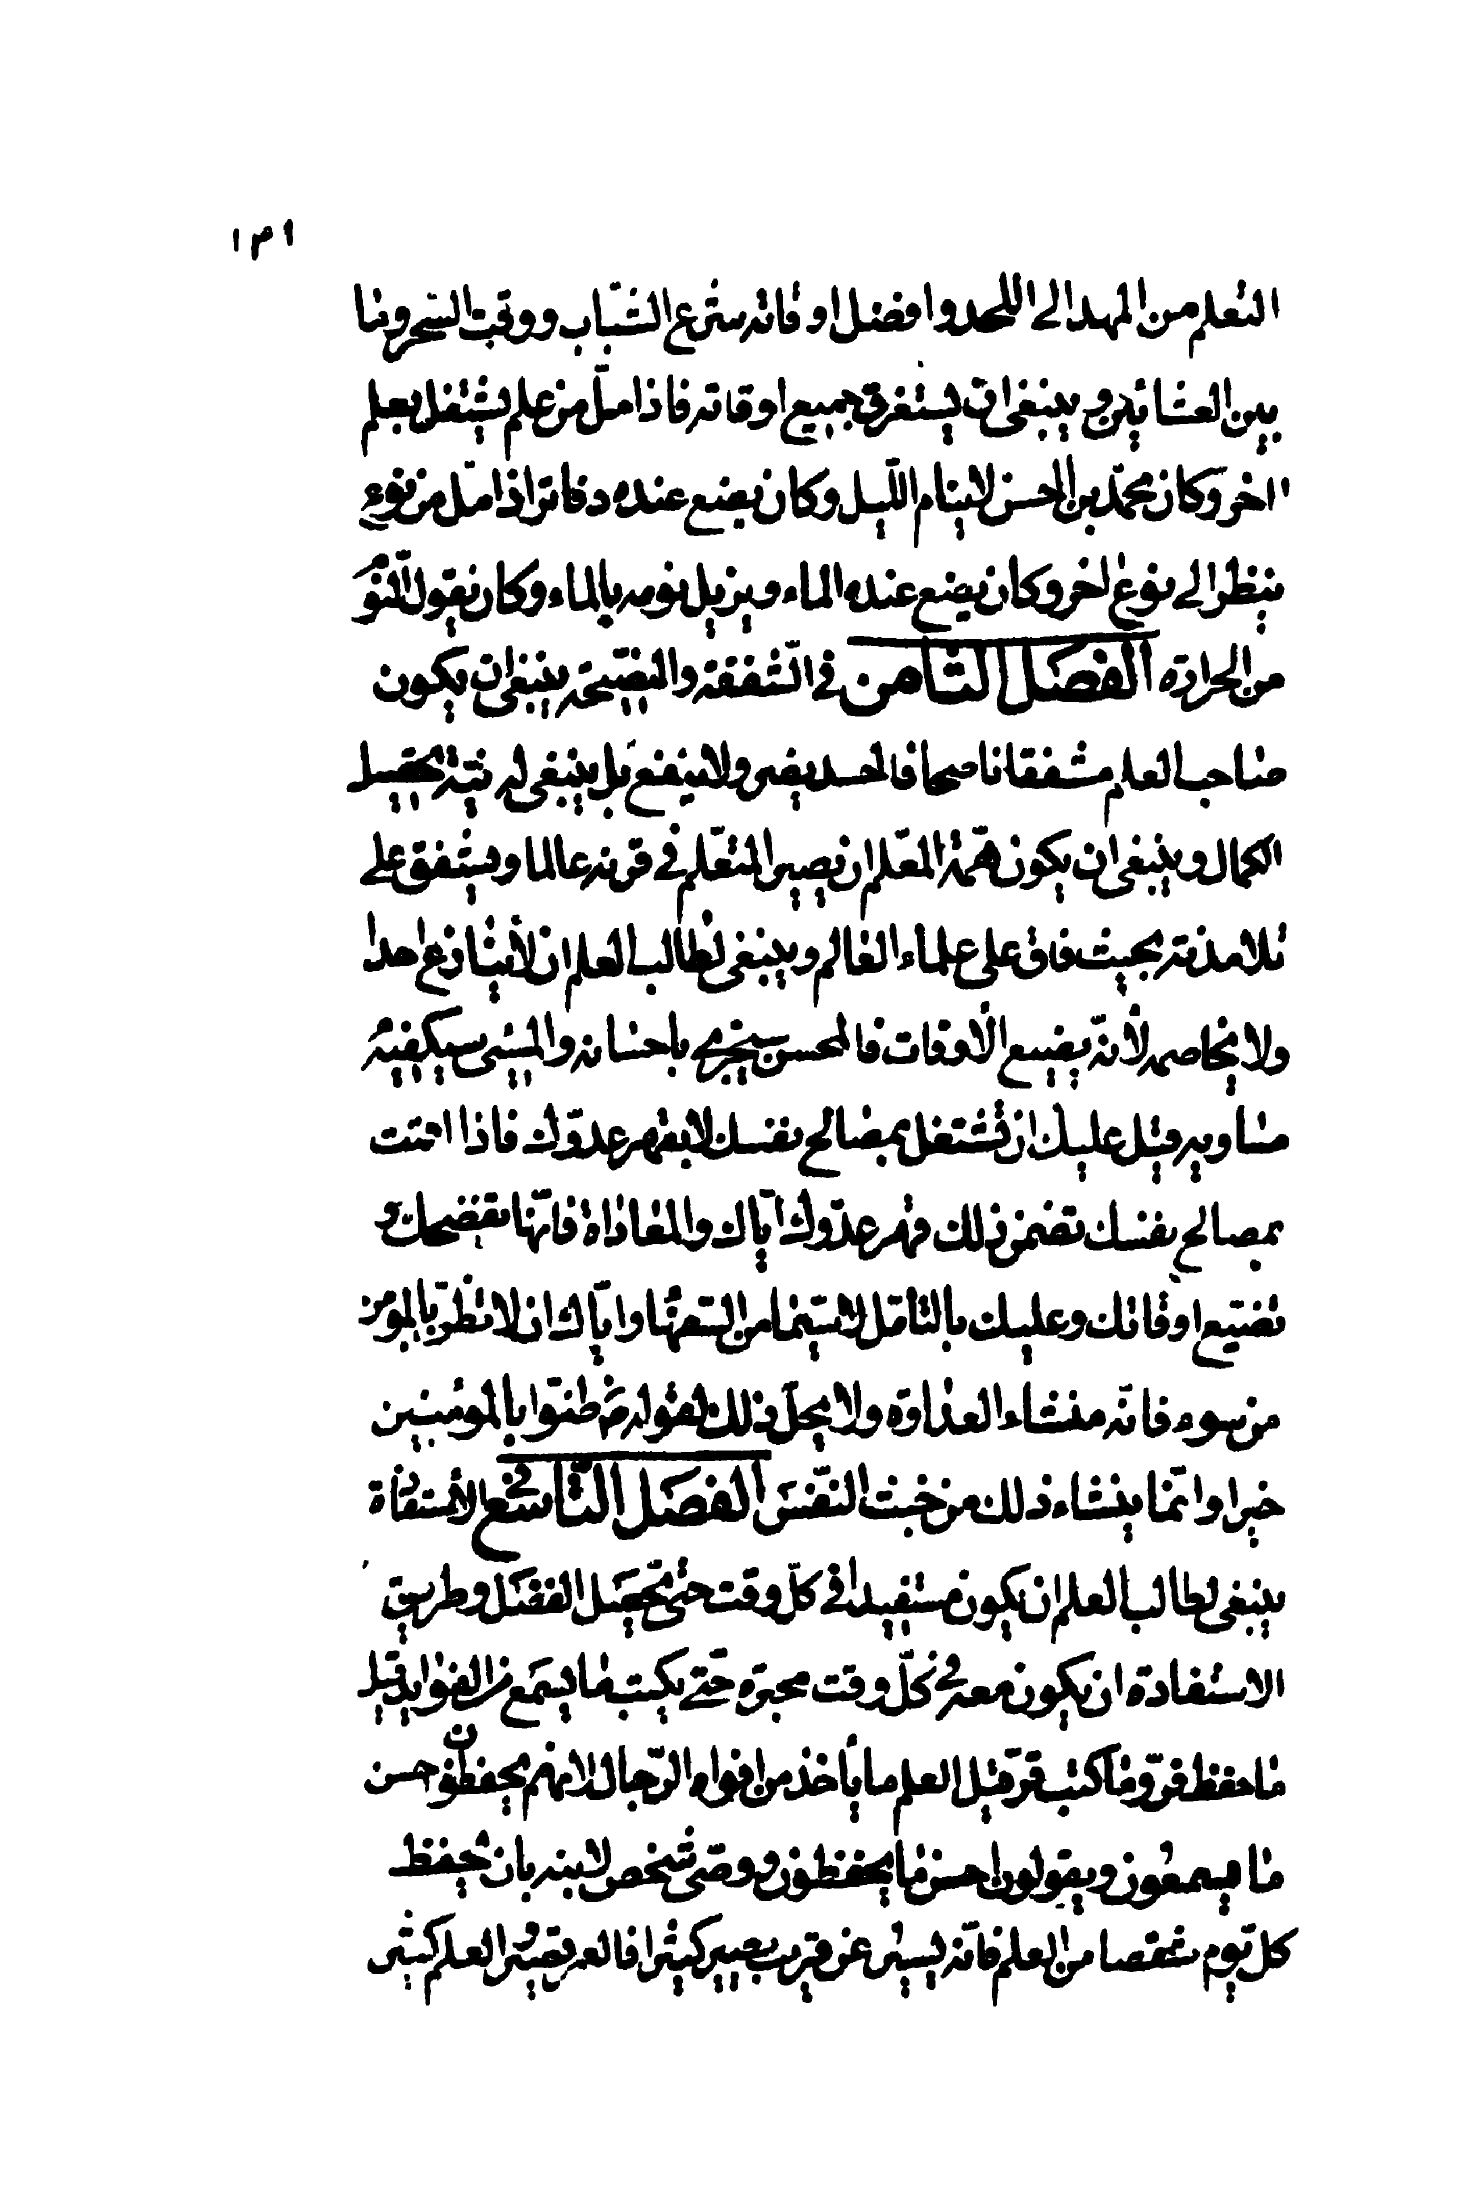 ١٣٩
التعلم من المهد الى اللحد وافضل اوقاته سترع الشباب ووقت السحر وما
بين العشائين وينبغى ان يستغرق جميع اوقاته فاذا ملّ من علم يشتغل بعلم
اخر وكان محمّد بن الحسن لا ينام اللّيل وكان يضع عنده دفاتر اذا ملّ من نوع
ينظر الى نوع اخر وكان يضع عنده الماء ويزيل نومه بالماء وكان يقول النّوم
من الحرارة الفصل الثامن فى الشفقة والنصيحة ينبغى ان يكون
صاحب العلم مشفقا ناصحا فالحسد يضر ولا ينفع بل ينبغى له نيّة تحصيل
الكمال وينبغى ان يكون همّة المعلّم ان يصير المتعلّم فى قرنه عالما ويشفق على
تلامذته بحيث فاق على علماء العالم وينبغى لطالب العلم ان لا ينازع احدا
ولا يخاصمه لأنّه يضيع الاوقات فالمحسن سيجزى باحسانه والمسئ سيكفيه
مساويه قيل عليك ان تشتغل بمصالح نفسك لا بقهر عدوّك فاذا اتمت
بمصالح نفسك تضمن ذلك قهر عدوّك ايّاك والمعاداة فانّها تفضحك و
تضيّع اوقاتك وعليك بالتأمّل لا سيّما من السّفهاء وايّاك ان لا تظنّ بالمؤمن
من سوء فانّه منشاء العداوة ولا يحلّ ذلك لقوله ظنّوا بالمومنين
خيرا وانّما ينشاء ذلك من خبث النّفس الفصل التّاسع فى الأستفادة
ينبغى لطالب العلم ان يكون مستفيدا فى كلّ وقت حتى تحصّل الفضل وطريق
الاستفادة ان يكون معه فى كلّ وقت محبرة حتّى يكتب ما يسمع من الفوايد قيل
ما حفظ فرّ وما كتب قرّ قيل العلم ما يأخذ من افواه الرّجال لانهم يحفظون احسن
ما يسمعون ويقولون احسن ما يحفظون ووصّى شخص لابنه بان يحفظ
كل يوم شقصا من العلم فانّه يسير عن قريب يصير كثيرا فالعمر قصير والعلم كثير